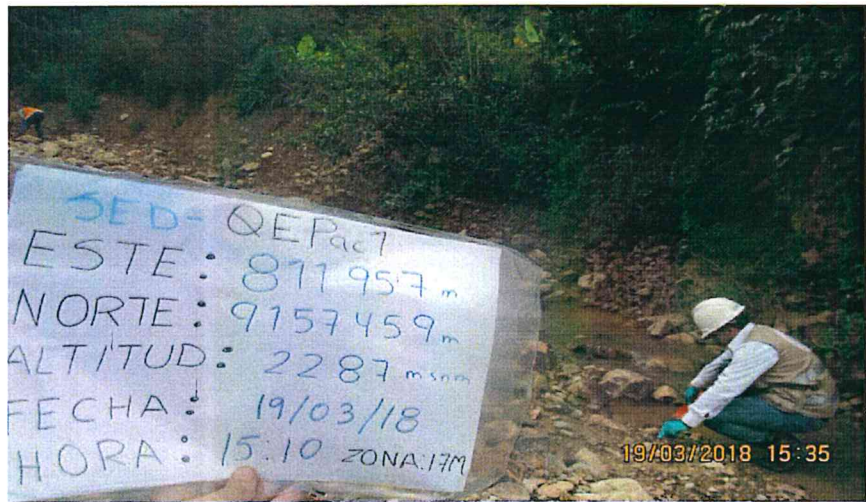 SED- QEPac1
ESTE: 811957 m
NORTE: 9157459 m
ALTITUD: 2287 msnm
FECHA: 19/03/18
HORA: 15:10 ZONA:17M
19/03/2018 15:35